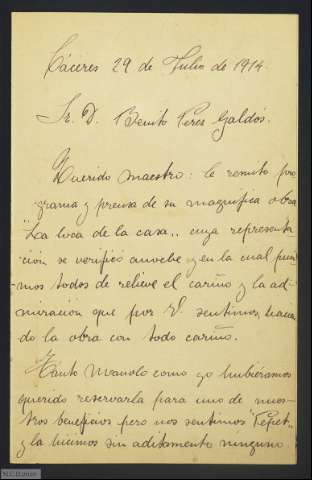 Cáceres 29 de Julio de 1914.
Sr. D. Benito Peres Galdós.
Querido maestro: le remito pro
grama y prensa de su magnifica obra
"La loca de la casa" cuya representa
ción se verificó anoche y en la cual pusi
mos todos de relieve el cariño y la ad-
miración que por V. sentimos, hacien
do la obra con todo cariño.
Tanto Manolo como yo hubieramos
querido reservarla para uno de nues-
tros beneficios pero nos sentimos "Pepet"
y la hicimos sin aditamento ninguno